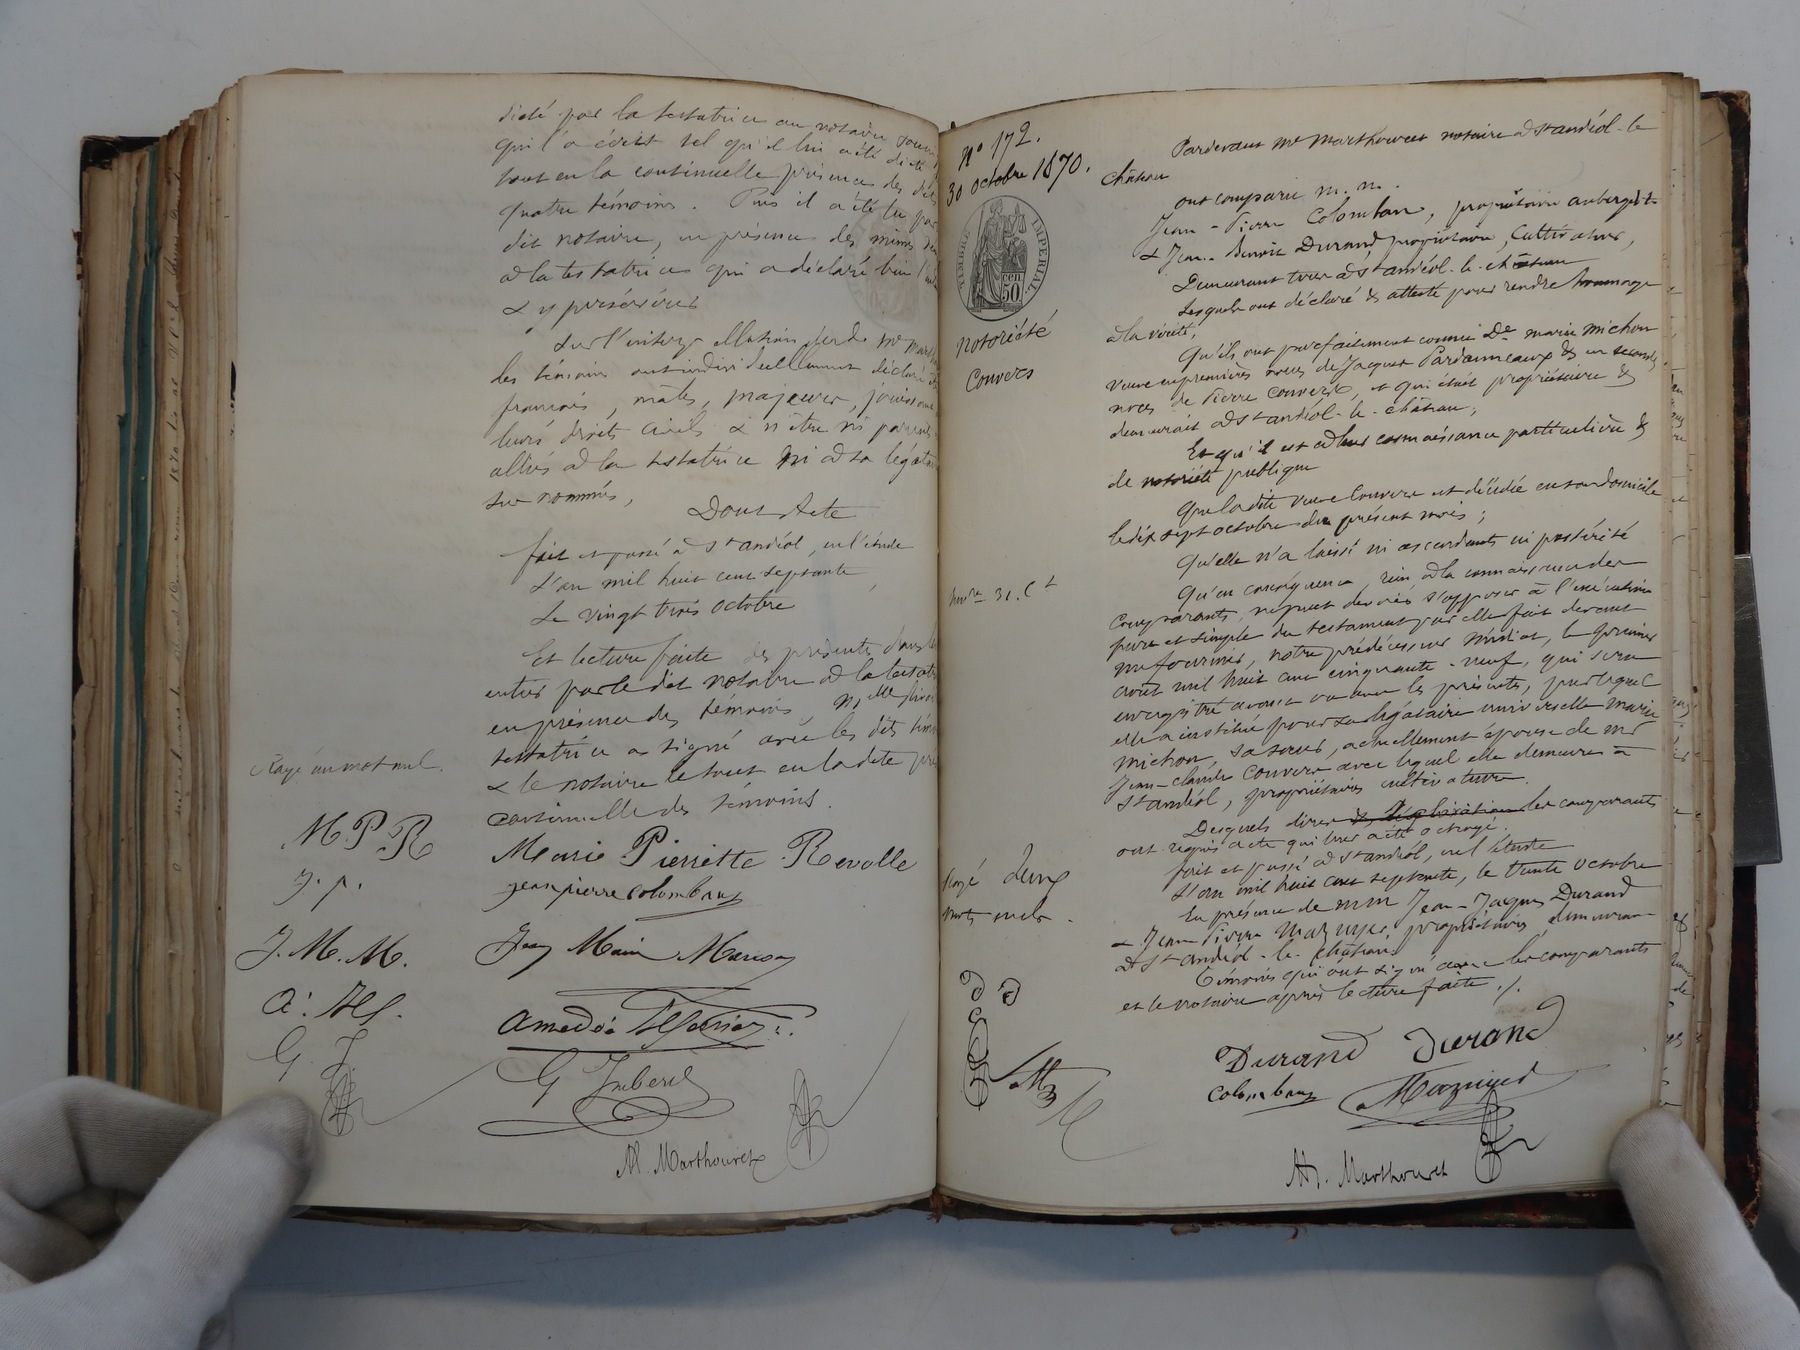 dicté par la testatrice au notaire
qui l'a écrit tel qu'il lui a été dicté
tout en la continuelle présence des dits
quatre témoins. Puis il a été lu par
dit notaire, en présence des mêmes
à la testatrice qui a déclaré bien
& y persévérer
Sur l'interpellation
les témoins ont individuellement déclaré
français, mâles, majeurs,
leurs droits civils & n'être ni parents
alliés de la testatrice ni de sa légataire
sus nommés,
Dont Acte
fait et passé à St andéol, en l'étude
L'an mil huit cent septante,
Le vingt trois octobre
Et lecture faite des présentes dans
entier par le dit notaire à la testatrice
en présence des témoins,
testatrice a signé avec les dits témoins
& le notaire le tout en la dite
continuelle des témoins.
Rayé un mot nul.
M.P.R Marie Pierrette Revolle
J. p. jean pierre colomban
J. M. M.
A. amedée
G. J G Imbert
M. Marthouret
N° 172.
30 octobre 1870.
TIMBRE IMPERIAL
50 cen
notoriété
Convers
Rayé deux
mots nuls.
Pardevant Me Marthouret notaire à St andéol-le
château
ont comparu M. M.
Jean-Pierre Colomban, propriétaire aubergiste
& Jean-Benoit Durand propriétaire, cultivateur,
Demeurant tous à St andéol-le-château
Lesquels ont déclaré & attesté pour rendre hommage
à la vérité,
Qu'ils ont parfaitement connu De marie michon
veuve en premières noces de Jacques Pardonneaux & en secondes
noces de Pierre Convers, et qui était propriétaire &
demeurait à St andéol-le-château;
Et qu'il est à leur connaissance particulière &
de notoriété publique
Que la dite veuve Convers est décédée en son domicile
le dix sept octobre du présent mois;
Qu'elle n'a laissé ni ascendants ni postérité
Qu'en conséquence, rien à la connaissance des
comparants, ne peut s'opposer à l'exécution
pure et simple du testament par elle fait devant
notre prédécesseur médiat, le premier
août mil huit cent cinquante-neuf, qui sera
enregistré avant ou avec les présentes, par lequel
elle a institué pour sa légataire universelle marie
michon, sa soeur, actuellement épouse de mr
Jean-claude Convers avec lequel elle demeure à
St andéol, propriétaires cultivateurs.
Desquels dires les comparants
ont requis acte qui leur a été octroyé.
fait et passé à St andéol, en l'étude
L'an mil huit cent septante, le trente octobre
En présence de MM Jean-Jacques Durand
& Jean Pierre Mazuyer, propriétaires, demeurant
à St andéol-le-château
Témoins qui ont signé avec les comparants
et le notaire après lecture faite ./.
Durand Durand
colomban Mazuyer
M. Marthouret